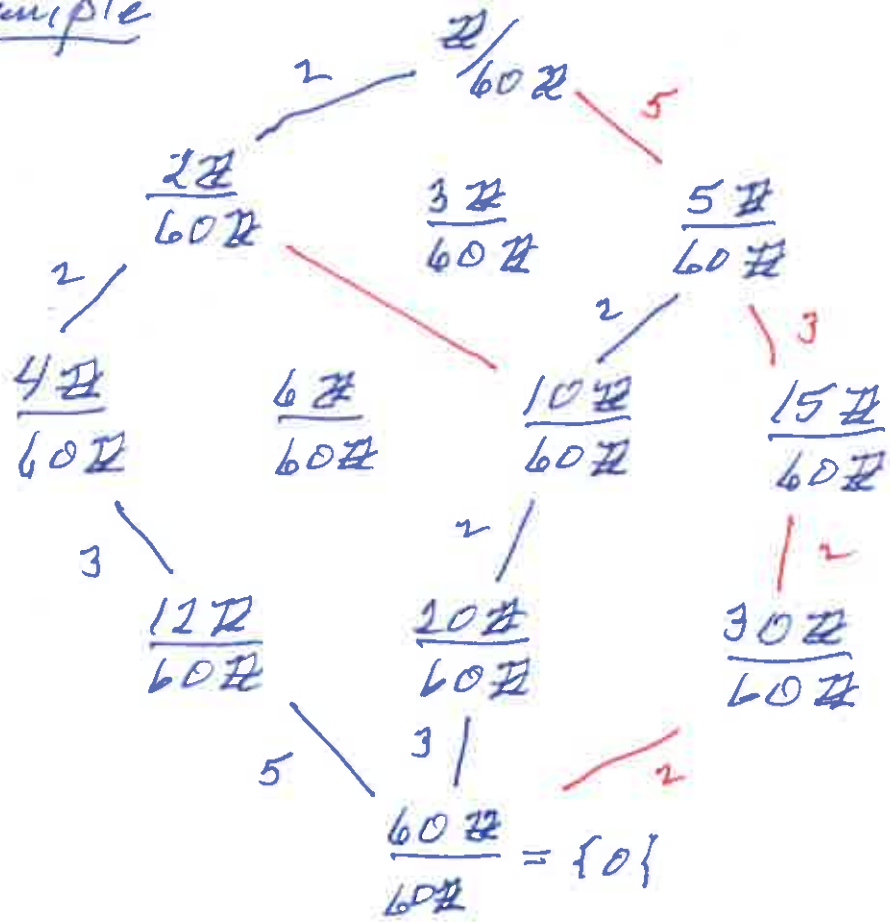 Z/60Z
2
5
2Z/60Z
3Z/60Z
5Z/60Z
2
2
3
4Z/60Z
6Z/60Z
10Z/60Z
15Z/60Z
3
2
2
12Z/60Z
20Z/60Z
30Z/60Z
5
3
2
60Z/60Z = {0{